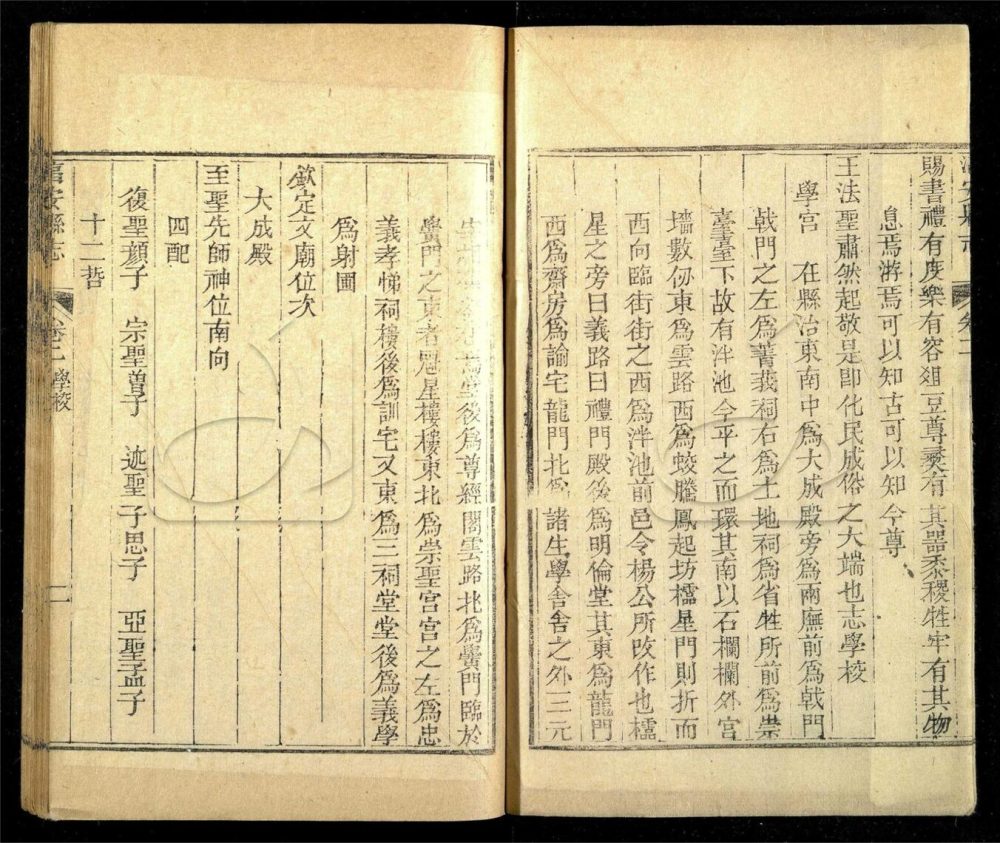 賜書禮有度樂有容俎豆尊彝有其器黍稷牲牢有其物
息焉游焉可以知古可以知今尊
王法聖肅然起敬是即化民成俗之大端也志學校
學宫 在縣治東南中爲大成殿旁爲兩廡前爲戟門
戟門之左爲菁莪祠右爲土地祠爲省牲所前爲崇
臺臺下故有泮池今平之而環其南以石欄欄外宫
墻數仞東爲雲路西爲蛟騰鳳起坊櫺星門則折而
西向臨街街之西爲泮池前邑令楊公所改作也櫺
星之旁曰義路曰禮門殿後爲明倫堂其東爲龍門
西爲齋房爲諭宅龍門北爲諸生學舍舍之外三元
堂後爲尊經閣雲路北爲黌門臨於
黌門之東者魁星樓樓東北爲崇聖宫宫之左爲忠
義孝悌祠樓後爲訓宅又東爲三祠堂堂後爲義學
爲射圃
欽定文廟位次
大成殿
至聖先師神位南向
四配
復聖顏子 宗聖曾子 述聖子思子 亞聖孟子
十二哲
安縣志 卷二 學校 二